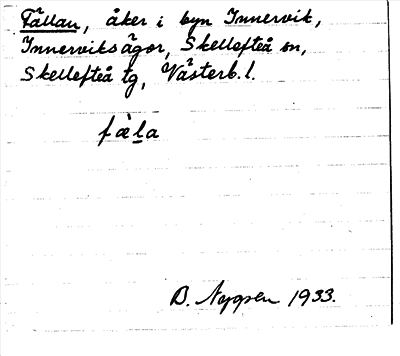 Fällan, åker i byn Innervik,
Innerviksägor, Skellefteå sn,
Skellefteå tg, Västerb. l.
fὰla
B. Nygren 1933.